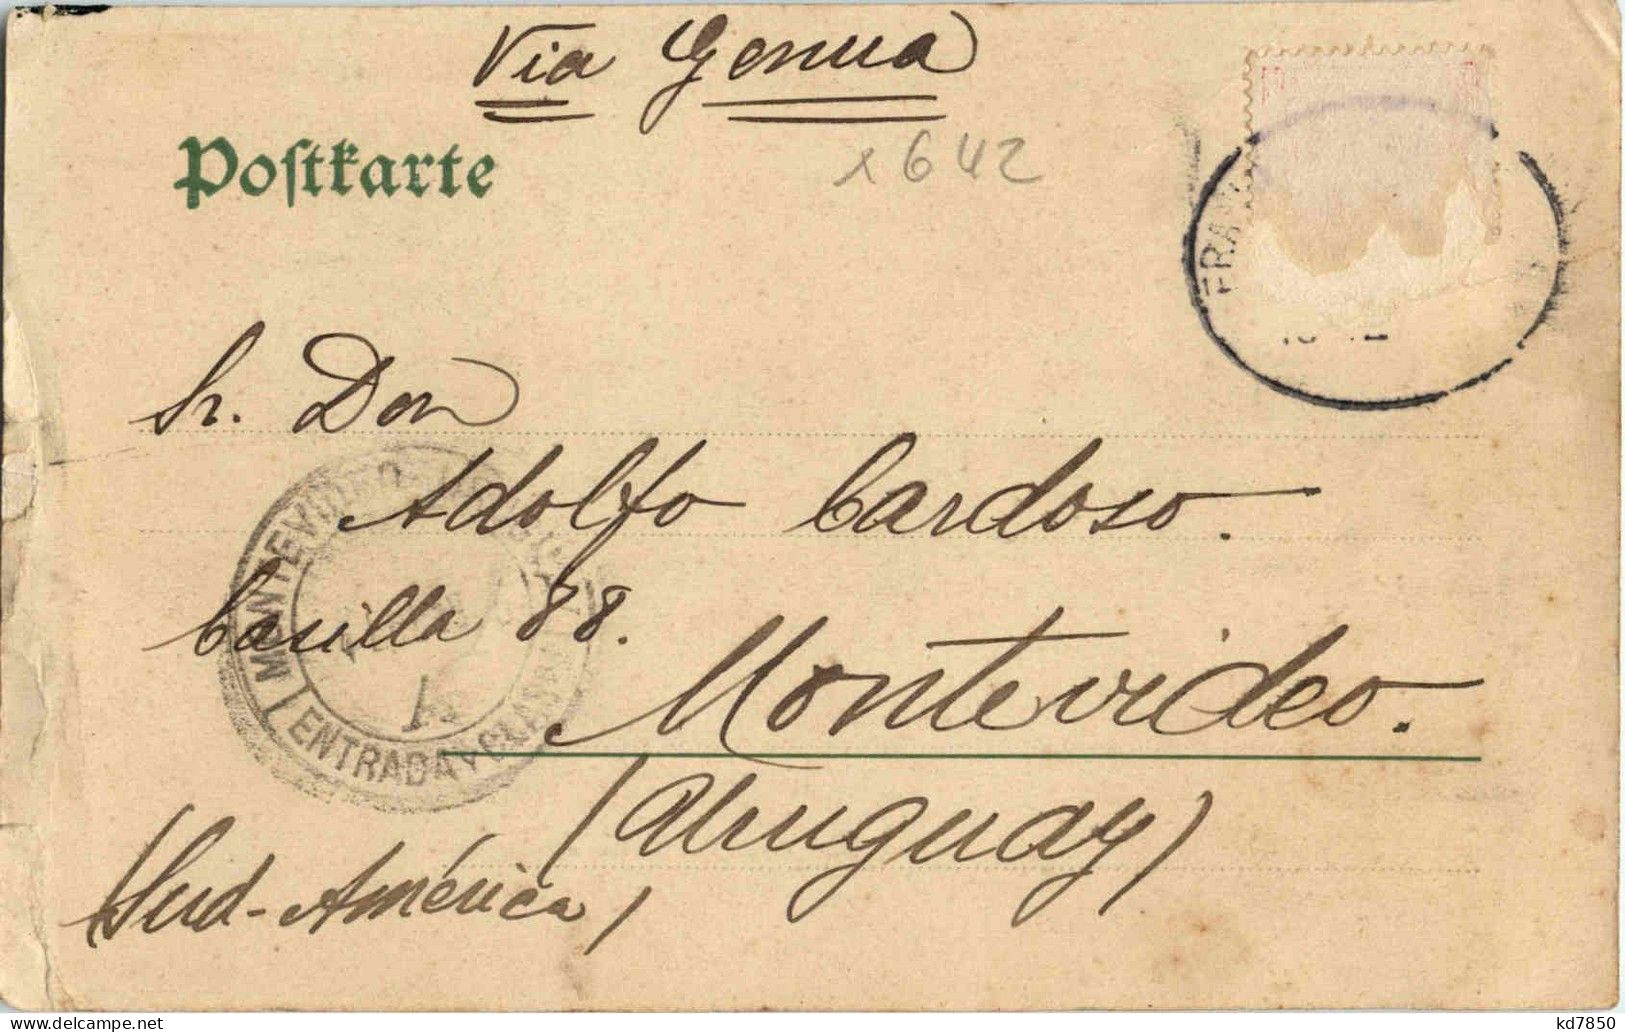 Via Genua
Postkarte
x 642
FRAN
Sr. Don
Adolfo Cardoso.
Casilla 88.
Montevideo.
(Uruguay)
(Sud-América)
MONTEVIDEO
ENTRADA Y CLAS
A
kd7850